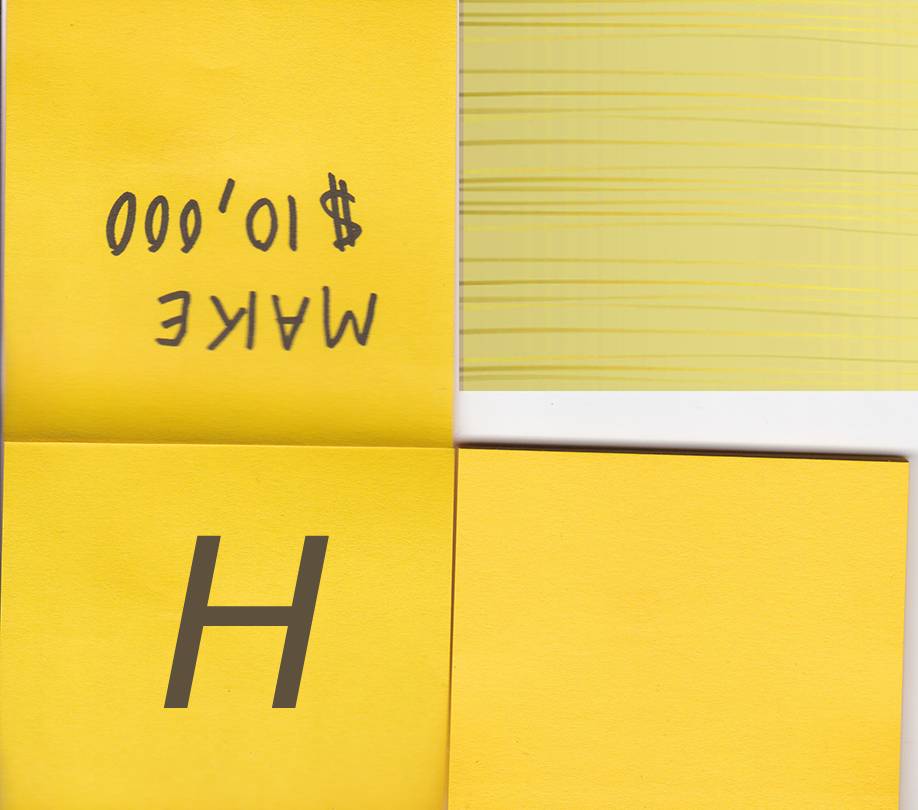 MAKE
$10,000
H